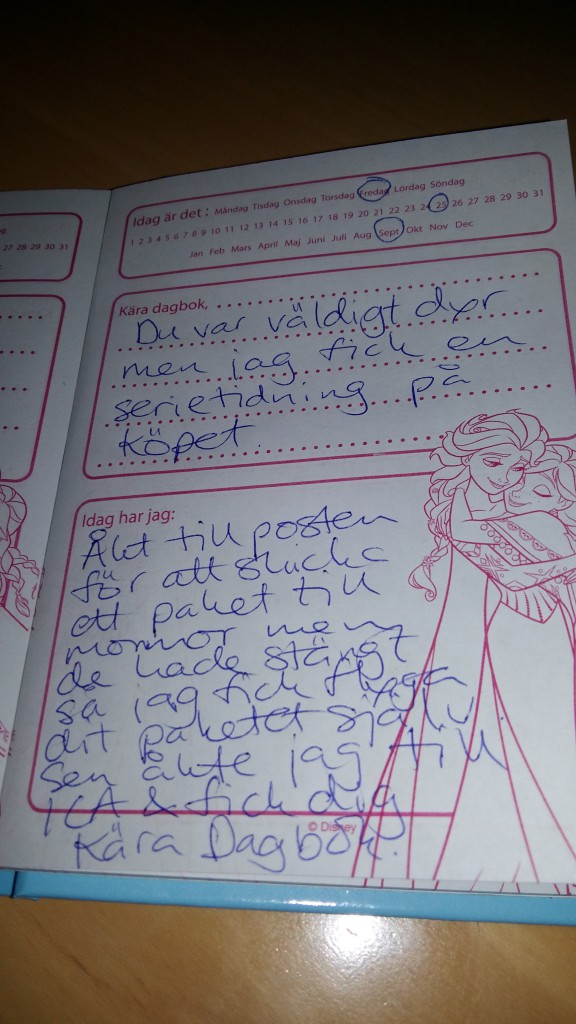 27 28 29 30 31
Idag är det : Måndag Tisdag Onsdag Torsdag Fredag Lördag Söndag
1 2 3 4 5 6 7 8 9 10 11 12 13 14 15 16 17 18 19 20 21 22 23 24 25 26 27 28 29 30 31
Jan Feb Mars April Maj Juni Juli Aug Sept Okt Nov Dec
Kära dagbok,
Du var väldigt dyr
men jag fick en
serietidning på
köpet.
Idag har jag:
Åkt till posten
för att skicka
ett paket till
mormor men
de hade stängt
så jag fick flyga
dit paketet själv.
Sen åkte jag till
ICA & fick dig
Kära Dagbok.
© Disney